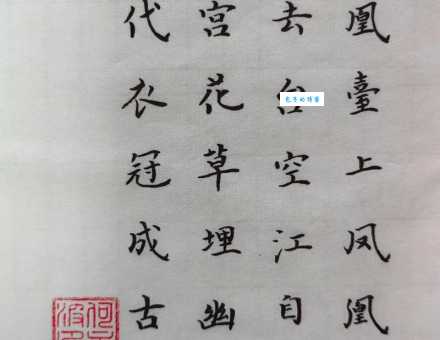 凰臺上凤凰
去台空江自
宫花草埋幽
代衣冠成古